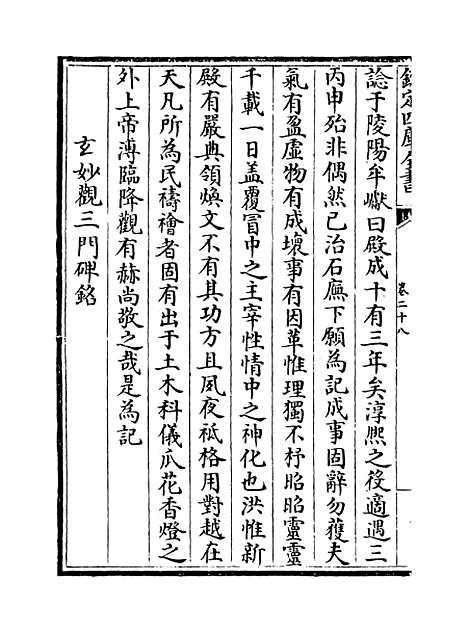 欽定四庫全書
卷二十八
諗于陵陽牟巘曰殿成十有三年矣淳熙之役適遇三
丙申殆非偶然已治石廡下願為記成事固辭勿獲夫
氣有盈虛物有成壞事有因革惟理獨不杼昭昭靈靈
千載一日蓋覆冒中之主宰性情中之神化也洪惟新
殿有嚴典領煥文不有其功方且夙夜祗格用對越在
天凡所為民禱禬者固有出于土木科儀瓜花香燈之
外上帝溥臨降觀有赫尚敬之哉是為記
玄妙觀三門碑銘